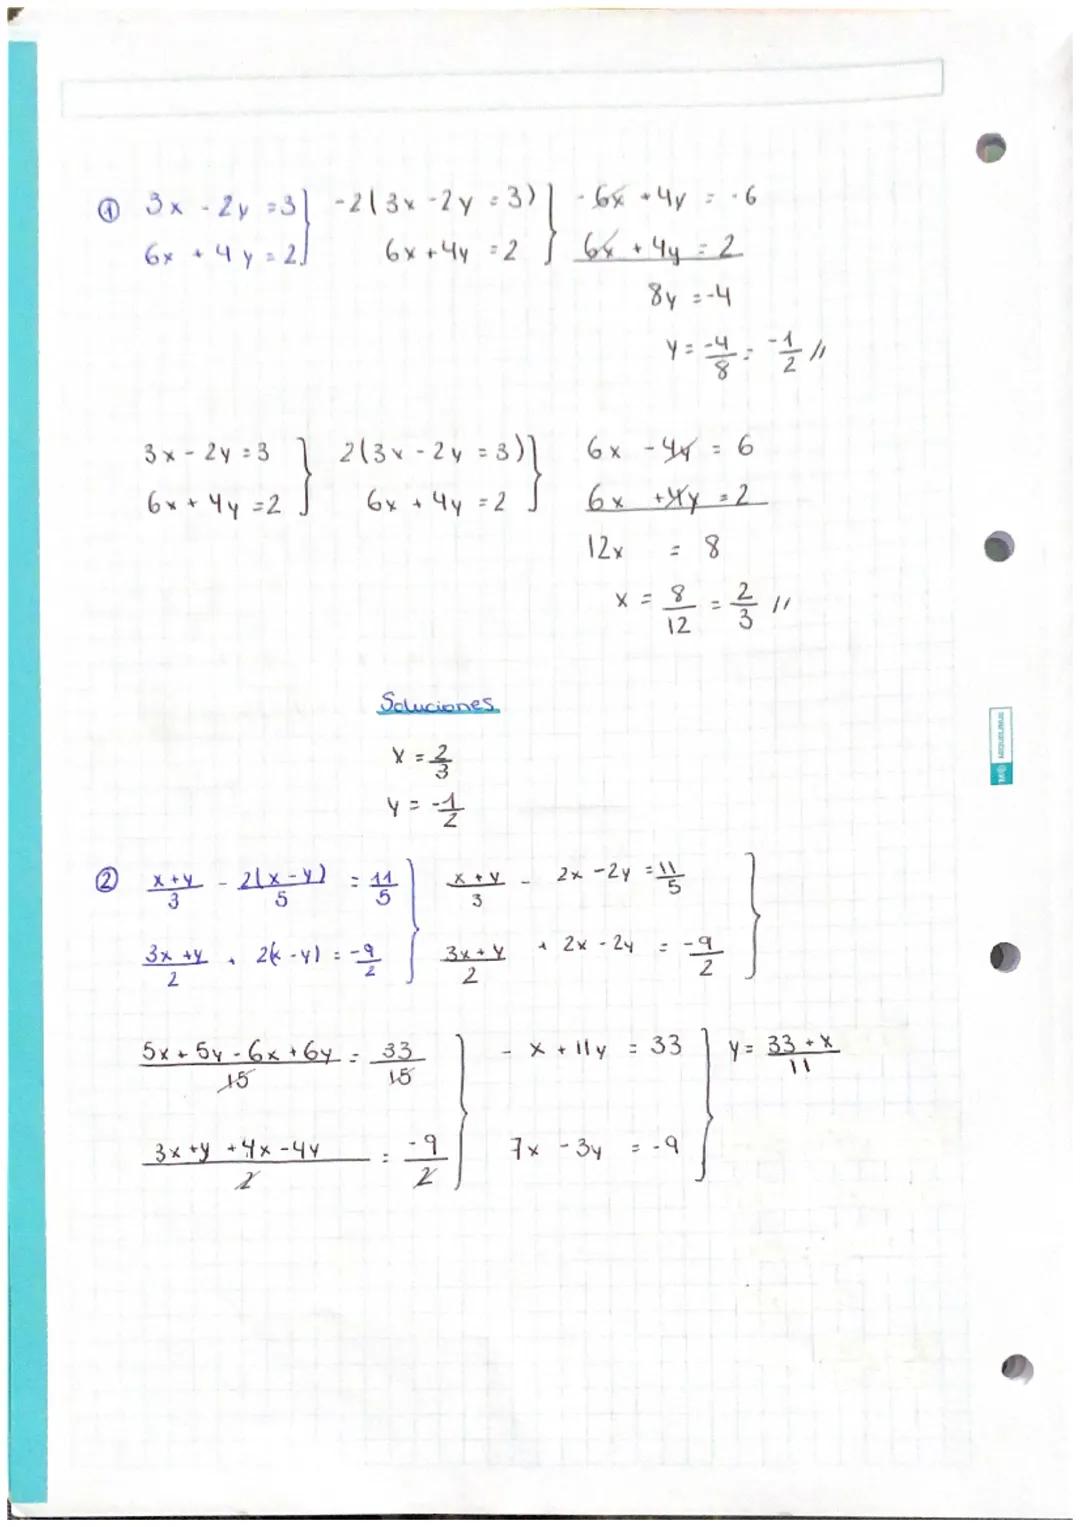 ① 3x - 2y = 3 } -2(3x - 2y = 3) } - 6x + 4y = -6
6x + 4y = 2 6x + 4y = 2 6x + 4y = 2
8y = -4
y = -4/8 = -1/2 //
3x - 2y = 3 } 2(3x - 2y = 3) } 6x - 4y = 6
6x + 4y = 2 6x + 4y = 2 6x + 4y = 2
12x = 8
x = 8/12 = 2/3 //
Soluciones
x = 2/3
y = -1/2
② x+y/3 - 2(x-y)/5 = 11/5 } x+y/3 - 2x-2y = 11/5 }
3x+y/2 + 2(x-y) = -9/2 3x+y/2 + 2x-2y = -9/2
5x+5y-6x+6y/15 = 33/15 } - x + 11y = 33 } y = 33+x/11
3x+y+4x-4y/2 = -9/2 7x - 3y = -9